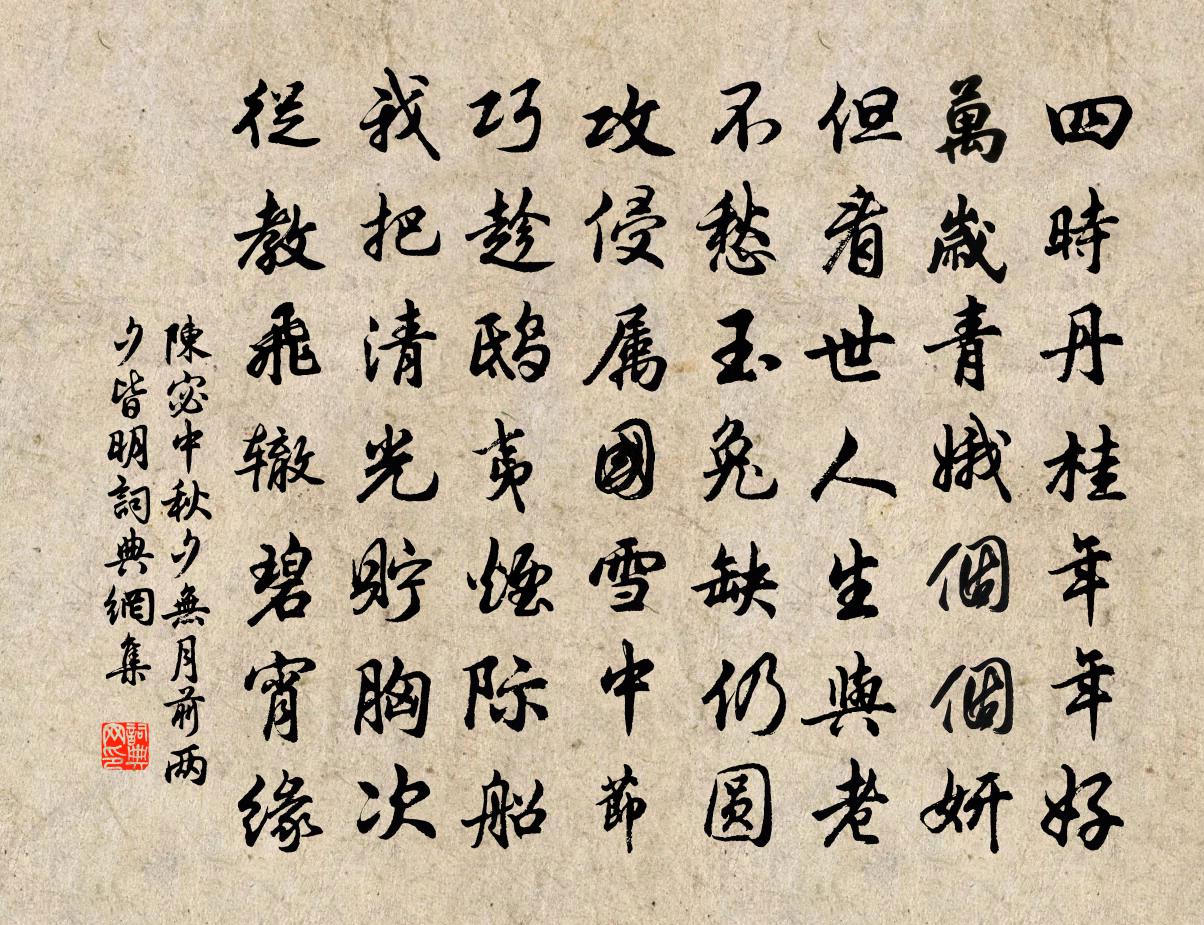 四時丹桂年年好
萬歲青娥個個妍
但看世人生與老
不愁玉兔缺仍圓
攻侵属國雪中節
巧趁鴟夷煙际船
我把清光貯胸次
從教飛辙碧宵緣
陳宓中秋夕無月前两
夕皆明詞典網集
詞典
网印